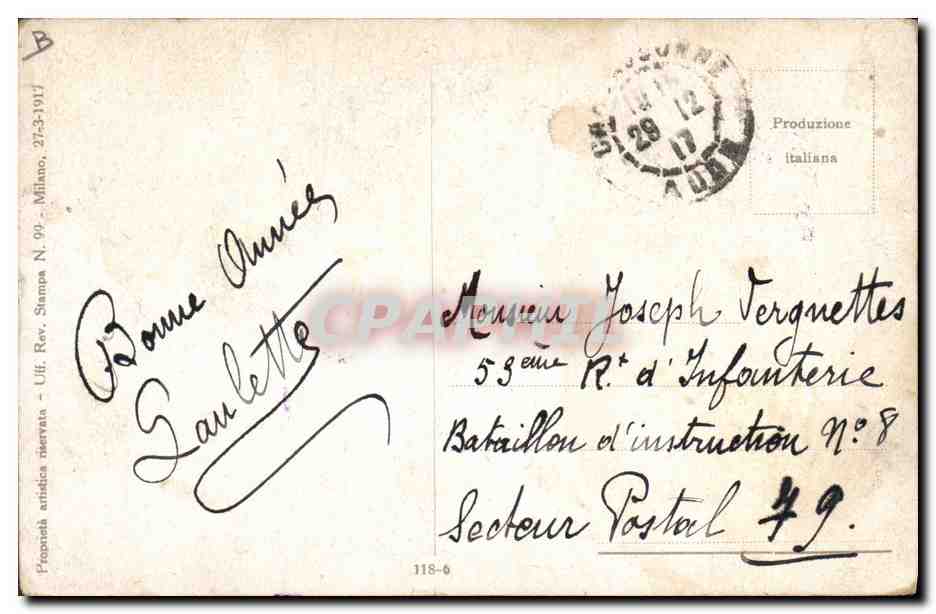 B
Proprietà artistica riservata - Uff. Rev. Stampa N. 99 - Milano, 27-3-1917
Bonne Année
Paulette
29 12
17
AUDE
Produzione
italiana
Monsieur Joseph Verguettes
53eme R.t d'Infanterie
Bataillon d'instruction No 8
Secteur Postal 79.
118-6
CPARAMA